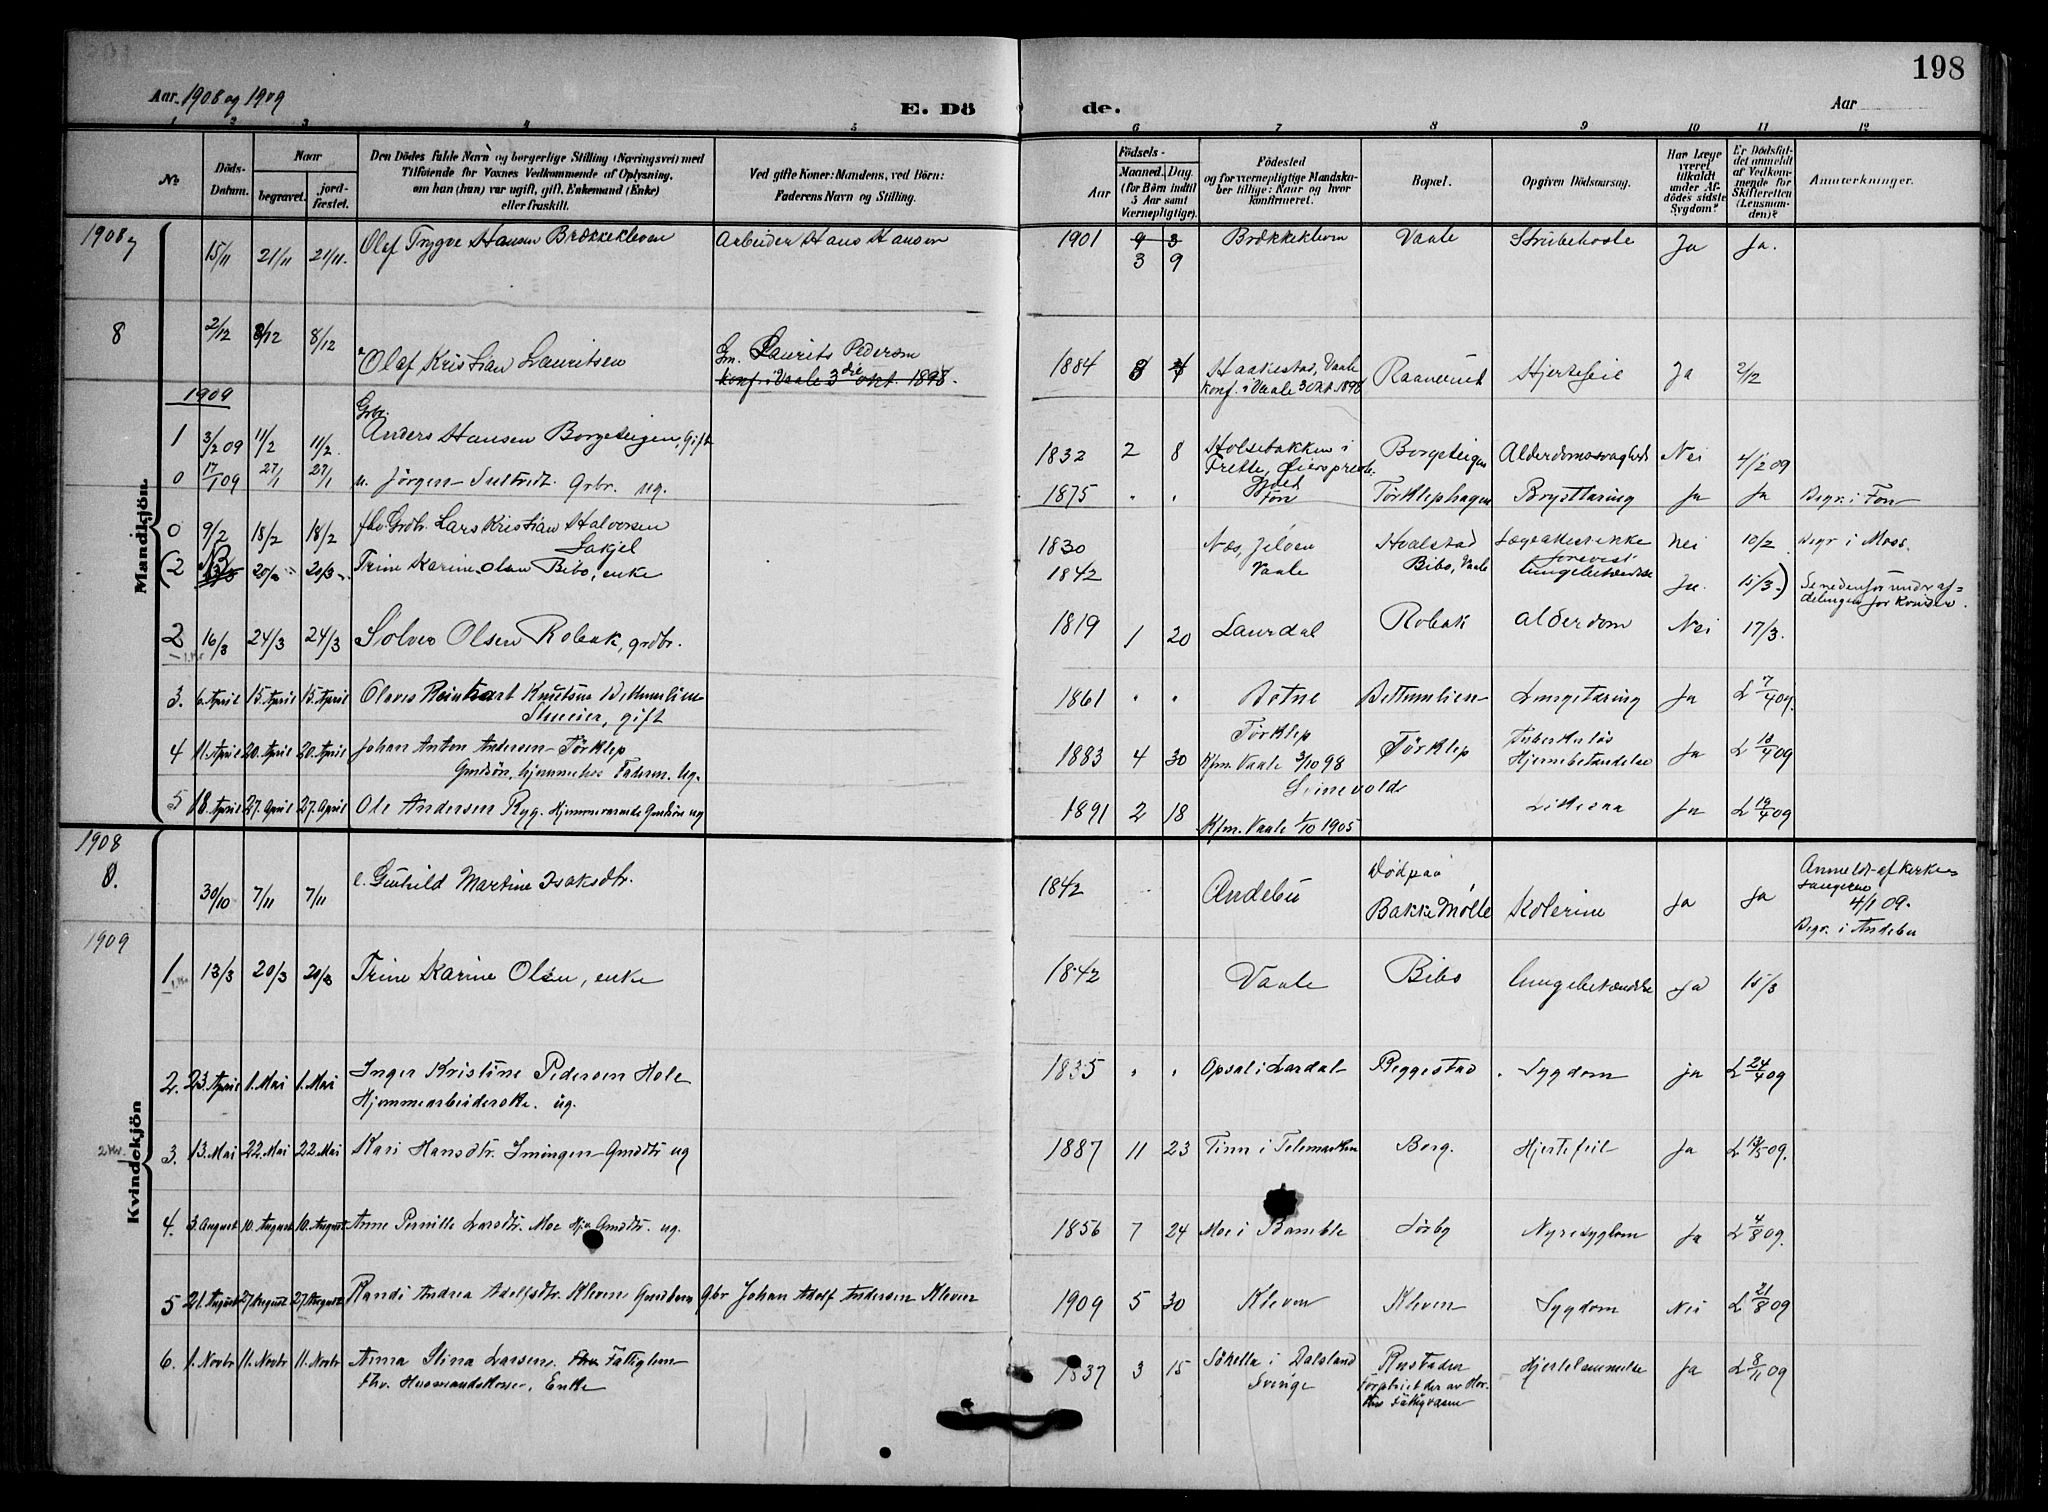 198
Aar. 1908 og 1909
E. Dö de.
Aar
1 2 3 4 5 6 7 8 9 10 11 12
No
Döds-Datum.
Naar
begravet.
jord-fæstet.
Den Dödes fulde Navn og borgerlige Stilling (Næringsvei) med
Tilföiende for Voxnes Vedkommende af Oplysning,
om han (hun) var ugift, gift, Enkemand (Enke)
eller fraskilt.
Ved gifte Koner: Mandens, ved Börn:
Faderens Navn og Stilling.
Födsels-
Aar
Maaned. Dag.
(for Börn indtil
5 Aar samt
Værnepligtige).
Födested
og for værnepligtige Mandska-
ber tillige: Naar og hvor
konfirmeret.
Bopæl.
Opgiven Dödsaarsag.
Har Læge
været
tilkaldt
under Af-
dödes sidste
Sygdom?
Er Dödsfal-
det anmeldt
af Vedkom-
mende for
Skifteretten
(Lensman-
den)?
Anmærkninger.
Mandkjön.
1908
7 15/11 21/11 21/11. Olaf Trygve Hansen Brækkekleven Arbeider Hans Hansen 1901 9 3 Brækkeklevn Vaale Strubehoste Ja Ja.
3 9
8 2/12 8/12 8/12 Olaf Kristian Lauritsen Gm. Laurits Pedersen 1884 8 Haakestad, Vaale Raanerud Hjertefeil Ja 2/12
konf. i Vaale 3die okt. 1898. konf. i Vaale 3 Okt. 1898
1909
Gbr.
1 3/2 09 11/2 11/2. Anders Hansen Borgeteigen, Gift 1832 2 8 Holsebakken i Borgeteigen Alderdomssvaghed Nei 4/2 09
0 17/1 09 27/1 27/1 u. Jörgen Grbr. ug. 1875 " " Fon Törklephagen Brysttæring Ja Ja Begr. i Fon
0 9/2 18/2 18/2 Lars Kristian Halvorsen 1830 Næs, Jelöen Hvalstad Lægeattest ikke Nei 10/2 Begr i Moss.
(2 20/3 20/3 Trine Karine Olsen Bibo, enke 1842 Vaale Bibo, Vaale lungebetændelse Ja. 15/3.) Se nedenfor under af-
delingen for kvinder.
2 16/3 24/3 24/3 Solves Olsen Robak, grdbr. 1819 1 20 Laurdal Robak Alderdom Nei 17/3.
3. 6. April 15. April 15. April Olaves Reinhart Knutsen 1861 " " Botne Lungetæring Ja L 7/4 09.
gift
4 11. April 20. April 20. April Johan Anton Andersen Törklep 1883 4 30 Törklep Törklep Tuberkulös Ja L 13/4 09
Gmdsön, hjemme hos Faderen. Ug. Kfm. Vaale 3/10 98 Hjernebetændelse
5 18. April 27. April 27. April Ole Andersen Ryg. Hjemmeværende Gmdsön ug 1891 2 18 Ja L 19/4 09
Kfm. Vaale 1/10 1905
Kvindekjön
1908
8. 30/10 7/11 7/11 e. Gunhild Martine Isaksdtr. 1842 Andebu Död paa Bakke Mölle Kolerine Ja Ja Anmeldt af Kirke-
sangeren
4/1 09.
Begr. i Andebu
1909
1 13/3 20/3 20/3 Trine Karine Olsen, enke 1842 Vaale Bibo lungebetændelse Ja 15/3
2. 23. April 1. Mai 1. Mai Inger Kristine Pedersen Hole 1835 " " Opsal i Lardal Reggestad Sygdom ja L 24/4 09
Hjemmearbeiderske. ug.
3. 13. Mai 22. Mai 22. Mai Kari Hansdtr. Imingen Gmdtr ug 1887 11 23 Tinn i Telemarken Borg. Hjertefeil Ja L 13/5 09.
4. 3. August 10. August 10. August Anne Pernille Larsdtr. Moe Gmdtr. ug. 1856 7 24 Moe i Bamble Sörby Nyresygdom Ja L 4/8 09.
5 21. August 27. August 27. August Randi Andrea Adolfsdtr. Kleven Gmdbarn Gbr Johan Adolf Andersen Kleven 1909 5 30 Kleven Kleven Sygdom Nei L 21/8 09
6. 1. Novbr 11. Novbr 11. Novbr Anna Stina Larsen. Fattiglem 1837 3 15 i Dalsland Rustaden Hjertelammelse Ja L 8/11 09
fhv. Husmandskone, Enke Sverige